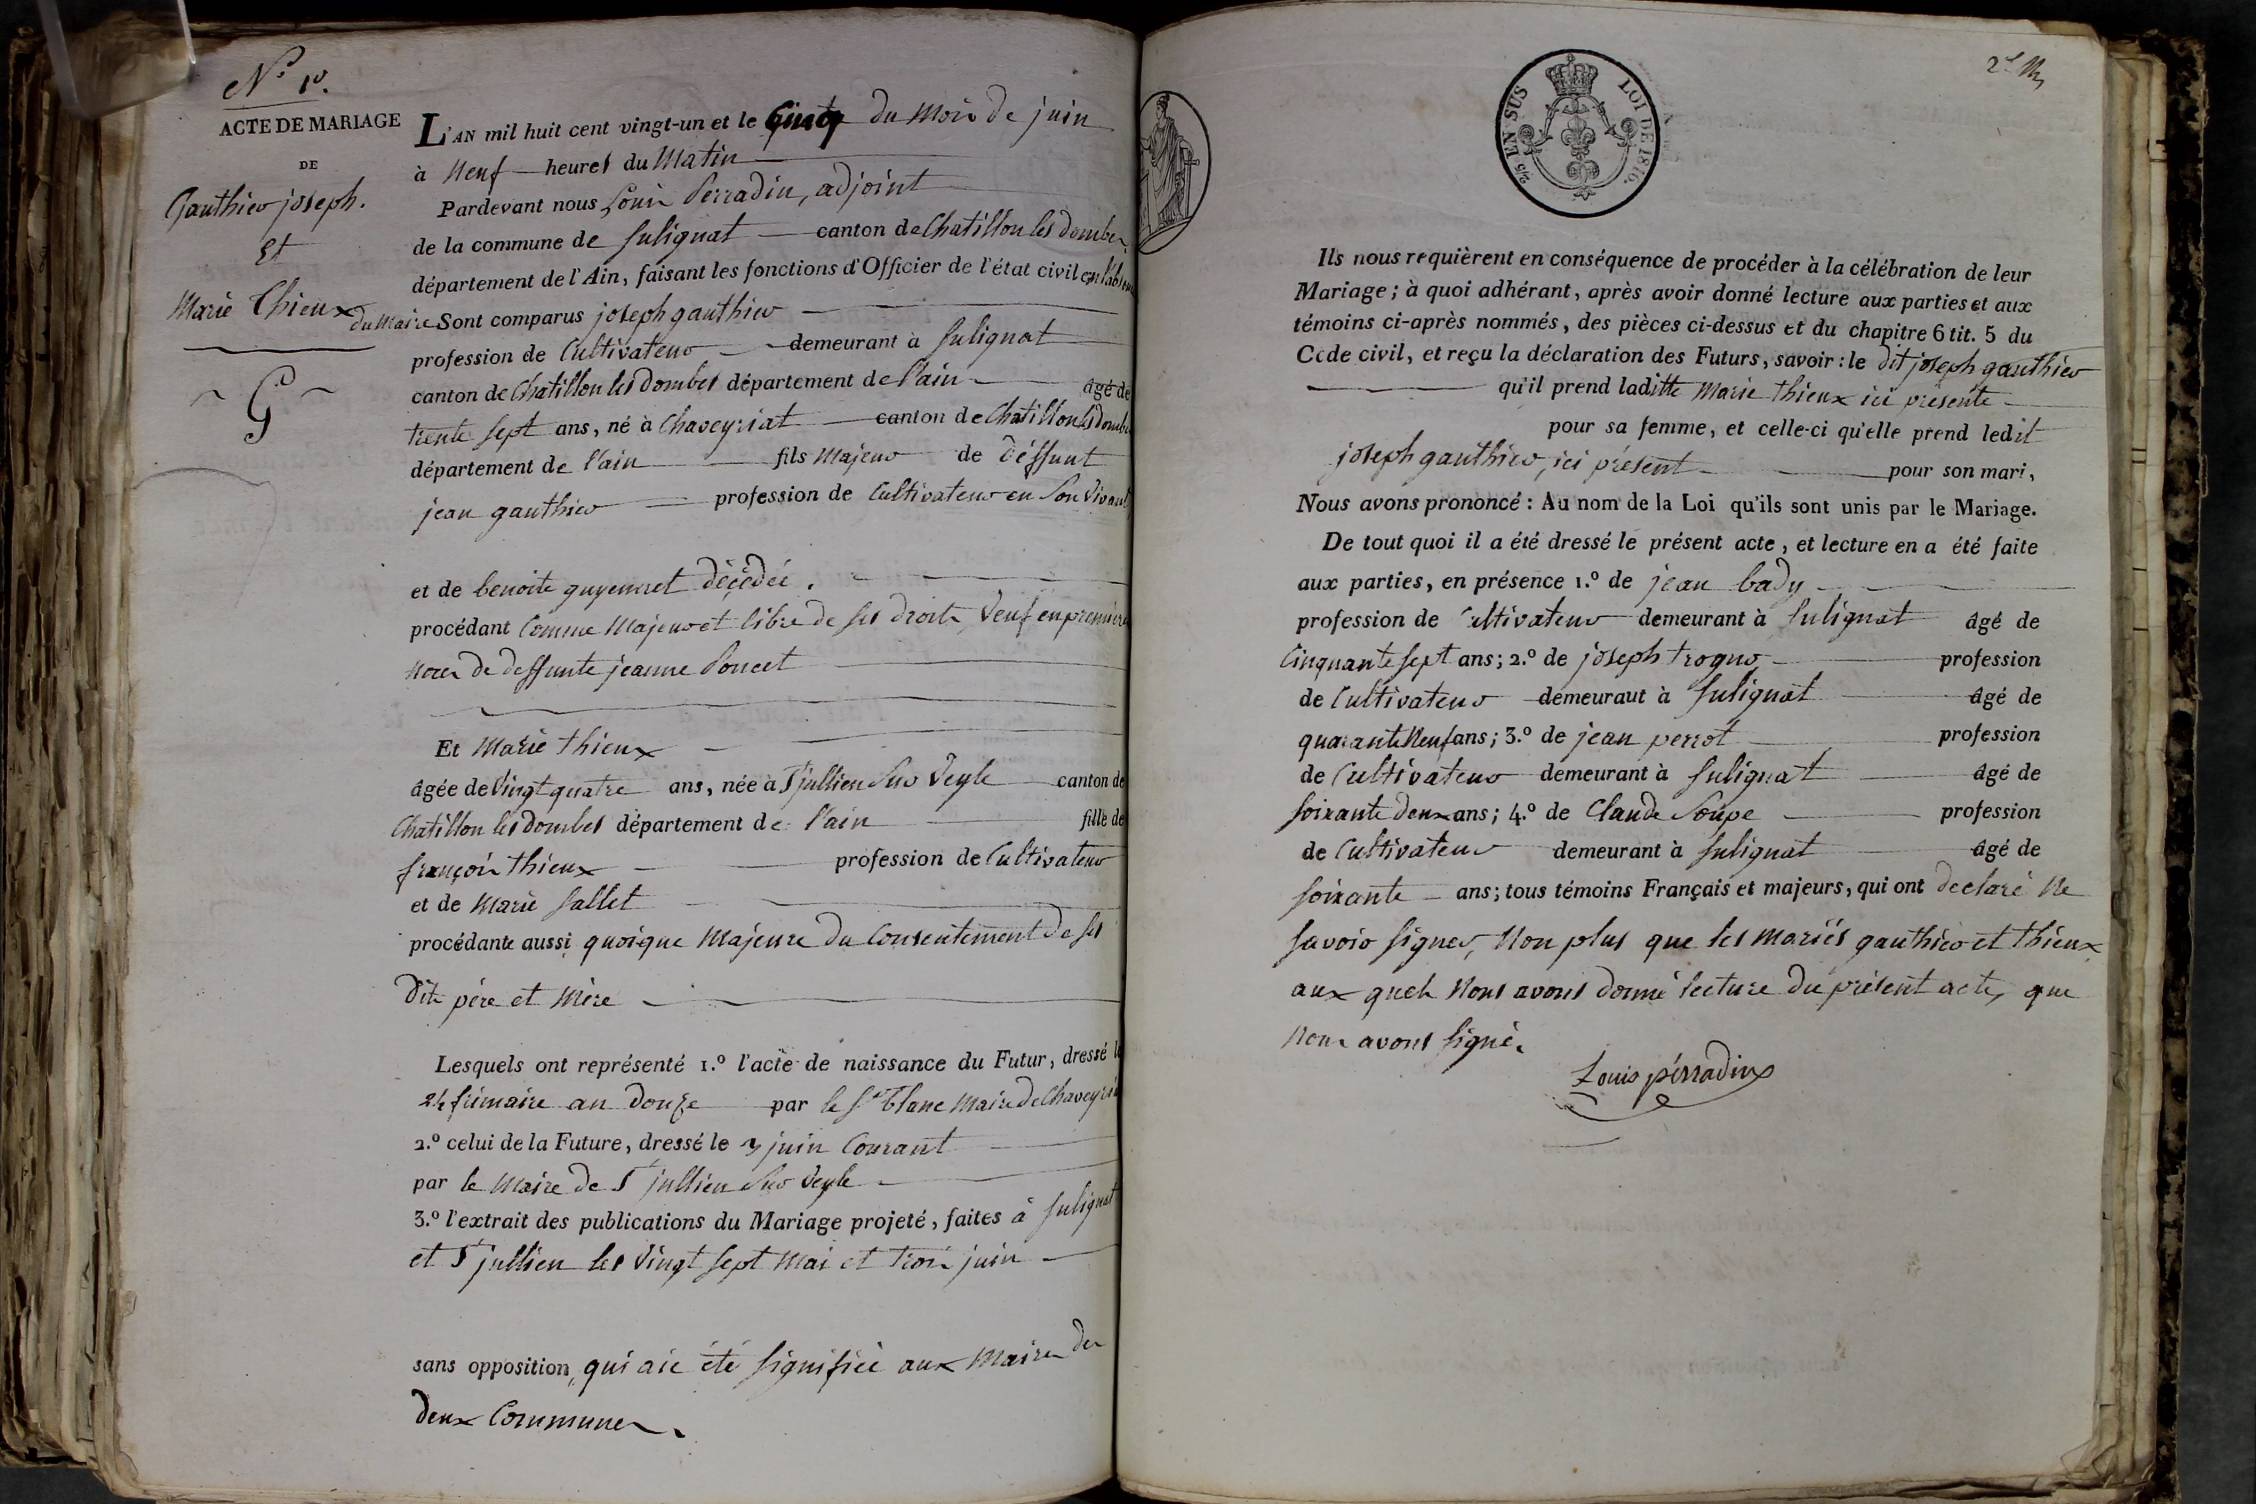 N.º 1º.
ACTE DE MARIAGE
DE
Gauthier joseph.
Et
Marie Thieux
G
L'AN mil huit cent vingt-un et le Cinq du mois de juin
à Neuf heures du Matin
Pardevant nous Louis Perradin, adjoint
de la commune de Sulignat canton de Chatillon les dombes
département de l'Ain, faisant les fonctions d'Officier de l'état civil en l'absence
du Maire Sont comparus joseph gauthier
profession de Cultivateur demeurant à Sulignat
canton de Chatillon les dombes département de l'ain âgé de
trente sept ans, né à Chaveyriat canton de Chatillon les dombes
département de l'ain fils Majeur de déffunt
jean gauthier profession de Cultivateur en Son Vivant
et de benoite guyennet décédée.
procédant Comme Majeur et libre de ses droits, Veuf en première
noces de deffunte jeanne Poncet
Et Marie thieux
âgée de Vingt quatre ans, née à St jullien Sur Veyle canton de
Chatillon les dombes département de l'ain fille de
françois thieux profession de Cultivateur
et de Marie Sallet
procédante aussi quoique Majeure du Consentement de ses
dits père et Mère
Lesquels ont représenté 1.º l'acte de naissance du Futur, dressé le
24 frimaire an douze par le Sr blanc Maire de Chaveyriat
2.º celui de la Future, dressé le 3 juin Courant
par le Maire de St jullien Sur Veyle
3.º l'extrait des publications du Mariage projeté, faites à Sulignat
et St jullien les Vingt Sept Mai et trois juin
sans opposition, qui aie été Signifiée aux Maires des
deux Communes.
2/5 EN SUS
LOI DE 1816.
Ils nous requièrent en conséquence de procéder à la célébration de leur
Mariage; à quoi adhérant, après avoir donné lecture aux parties et aux
témoins ci-après nommés, des pièces ci-dessus et du chapitre 6 tit. 5 du
Code civil, et reçu la déclaration des Futurs, savoir: le dit joseph gauthier
qu'il prend laditte Marie thieux ici présente
pour sa femme, et celle-ci qu'elle prend ledit
joseph gauthier, ici présent pour son mari,
Nous avons prononcé: Au nom de la Loi qu'ils sont unis par le Mariage.
De tout quoi il a été dressé le présent acte, et lecture en a été faite
aux parties, en présence 1.º de jean bady
profession de Cultivateur demeurant à Sulignat âgé de
Cinquante Sept ans; 2.º de joseph trogno profession
de Cultivateur demeuraut à Sulignat âgé de
quarante Neuf ans; 3.º de jean perrot profession
de Cultivateur demeurant à Sulignat âgé de
Soixante deux ans; 4.º de Claude Soupe profession
de Cultivateur demeurant à Sulignat âgé de
Soixante ans; tous témoins Français et majeurs, qui ont declaré Ne
Savoir Signer, Non plus que les Mariés gauthier et thieux
aux quels Nous avons donné lecture du présent acte, que
Nous avons Signé.
Louis pérradin